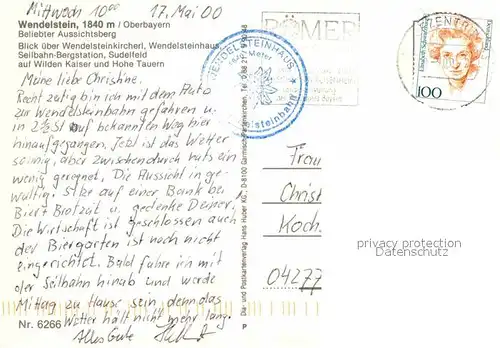 Mittwoch 10⁰⁰ 17. Mai 00
Wendelstein, 1840 m / Oberbayern
Beliebter Aussichtsberg
Blick über Wendelsteinkircherl, Wendelsteinhaus,
Seilbahn-Bergstation, Sudelfeld
auf Wilden Kaiser und Hohe Tauern
Meine liebe Christine.
Recht zeitig bin ich mit dem Auto
zur Wendelsteinbahn gefahren u.
in 2½ St auf bekannten Weg hier
hinaufgegangen. Jetzt ist das Wetter
sonnig, aber zwischendurch hats ein
wenig geregnet. Die Aussicht ist ge-
waltig. Sitze auf einer Bank bei
Bier + Brotzeit u. gedenke Deiner.
Die Wirtschaft ist geschlossen auch
der Biergarten ist noch nicht
eingerichtet. Bald fahre ich mit
der Seilbahn hinab und werde
Mittag zu Hause sein denn das
Wetter hält nicht mehr lang.
Alles Gute
Nr. 6266
P
Dia- und Postkartenverlag Hans Huber KG., D-8100 Garmisch-Partenkirchen, Tel. 0 88 21
WENDELSTEINHAUS
Meter
Wendelsteinbahn
RÖMER
ZENTRUM
100
Frau
Christ
Koch
04277
privacy protection
Datenschutz